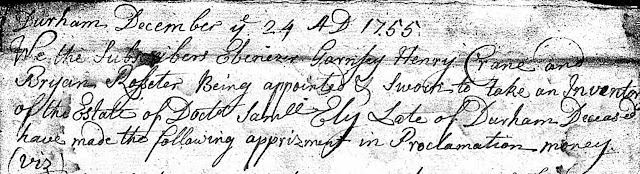 Durham December ye 24 AD 1755
We the Subscribers Ebenezer Garnsey Henry Crane and
Bryan Rosseter Being appointed & Sworn to take an Inventor
of the Estate of Doctr Samll Ely Late of Durham Deceased
have made the following apprizment in Proclamation money.
(viz)